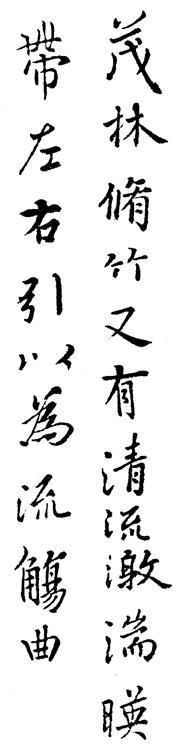 茂林脩竹又有清流激湍暎
帶左右引以為流觴曲